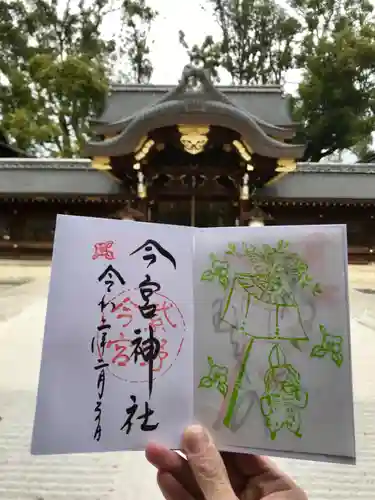 今宮神社
武野
今宮
令和三年二月三日